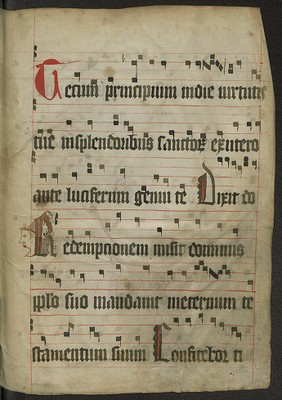 Tecum principium in die virtutis
tue in splendoribus sanctoꝝ ex utero
ante luciferum genui te Dixit do
Redemptionem misit dominus
pplo suo mandavit in eternum te
stamentum suum Confitebor ti